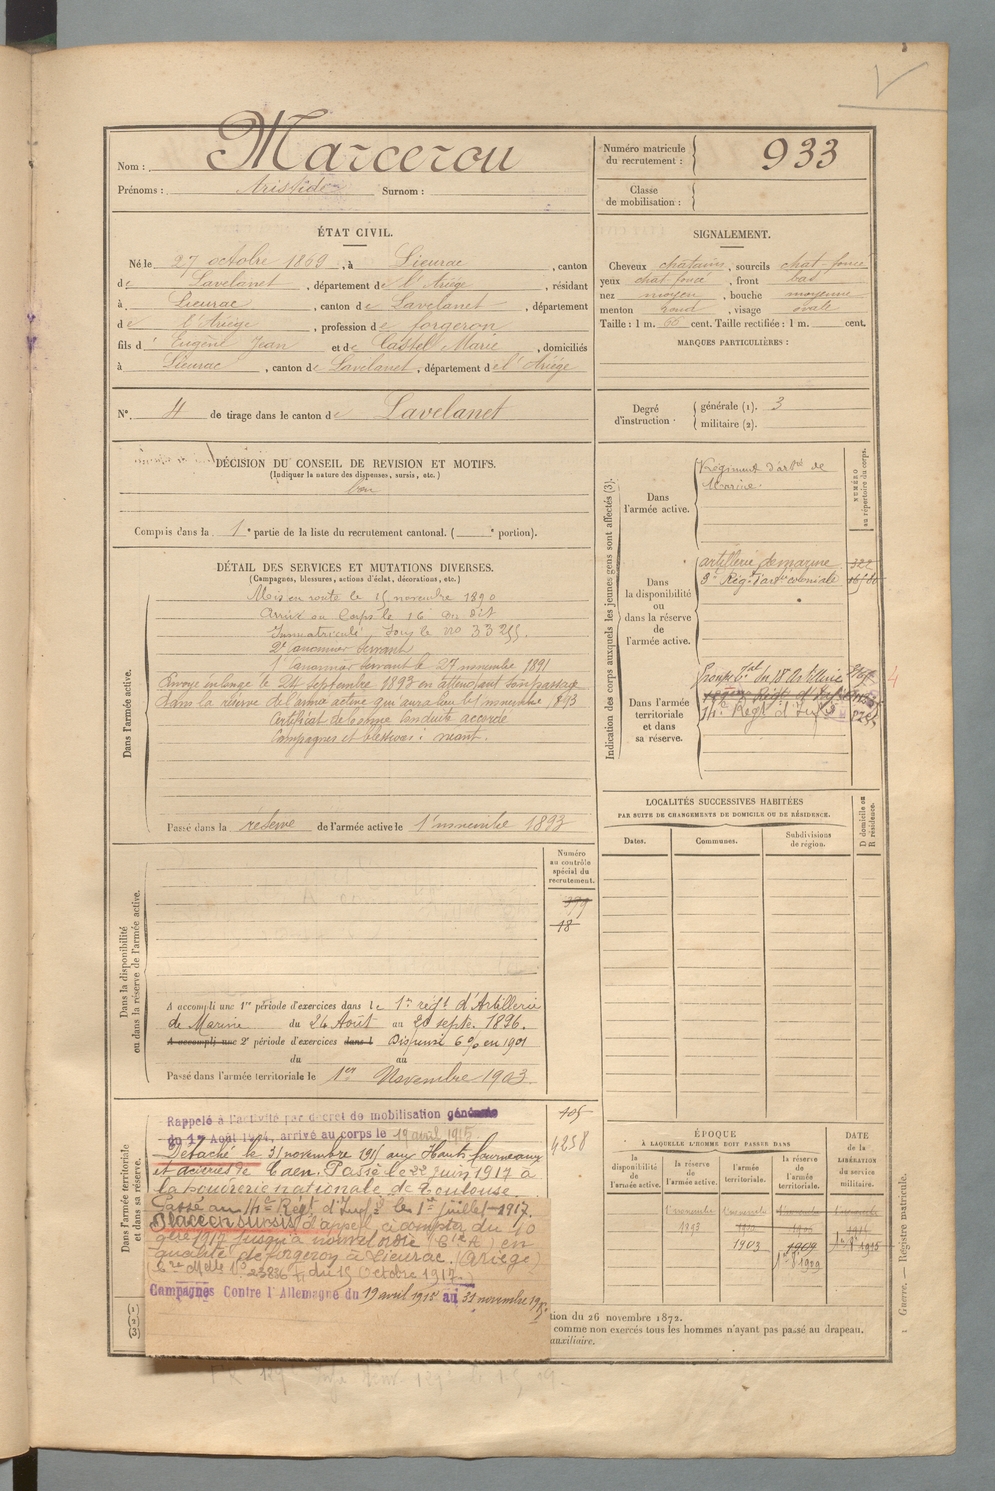 Nom : Marcerou
Prénoms : Aristide Surnom :
Numéro matricule du recrutement : 933
Classe de mobilisation :
ÉTAT CIVIL.
Né le 27 octobre 1869, à Lieurac, canton
de Lavelanet, département de l'Ariège, résidant
à Lieurac, canton de Lavelanet, département
de l'Ariège, profession de forgeron
fils d' Eugène Jean et de Castel Marie, domiciliés
à Lieurac, canton de Lavelanet, département de l'Ariège
SIGNALEMENT.
Cheveux chatains, sourcils chat foncé
yeux chat foncé, front bas
nez moyen, bouche moyenne
menton rond, visage ovale
Taille : 1 m. 65 cent. Taille rectifiée : 1 m. cent.
MARQUES PARTICULIÈRES :
N°. 4 de tirage dans le canton de Lavelanet
Degré d'instruction
générale (1). 3
militaire (2).
DÉCISION DU CONSEIL DE REVISION ET MOTIFS.
(Indiquer la nature des dispenses, sursis, etc.)
bon
Compris dans la 1e partie de la liste du recrutement cantonal. ( e portion).
DÉTAIL DES SERVICES ET MUTATIONS DIVERSES.
(Campagnes, blessures, actions d'éclat, décorations, etc.)
Dans l'armée active.
Mis en route le 15 novembre 1890
Arrivé au Corps le 16 du dit
Immatriculé sous le no 33255.
2e Canonnier servant
1er Canonnier servant le 27 novembre 1891
Envoyé en congé le 24 septembre 1893 en attendant son passage
dans la réserve de l'armée active qui aura lieu le 1er novembre 1893
Certificat de bonne conduite accordé
Campagnes et blessures : néant.
Passé dans la réserve de l'armée active le 1er novembre 1893
Indication des corps auxquels les jeunes gens sont affectés (3).
NUMÉRO au répertoire du corps.
Dans l'armée active.
Régiment d'artrie de
Marine.
Dans la disponibilité ou dans la réserve de l'armée active.
artillerie de marine 322
3e Régt d'artie coloniale
Dans l'armée territoriale et dans sa réserve.
14e Régt d'Infrie
LOCALITÉS SUCCESSIVES HABITÉES
PAR SUITE DE CHANGEMENTS DE DOMICILE OU DE RÉSIDENCE.
Dates. Communes. Subdivisions de région. D domicile ou R résidence.
Dans la disponibilité ou dans la réserve de l'armée active.
Numéro au contrôle spécial du recrutement.
399
18
A accompli une 1re période d'exercices dans le 1er régt d'Artillerie
de Marine du 24 Août au 20 septe. 1896.
A accompli une 2e période d'exercices dans l Dispensé 6 % en 1901
du au
Passé dans l'armée territoriale le 1er Novembre 1903.
Dans l'armée territoriale et dans sa réserve.
105
4258
Rappelé à l'activité par décret de mobilisation générale
du 1er Août 1914, arrivé au corps le 19 avril 1915.
Détaché le 31 novembre 1915 aux Hauts fourneaux
et aciéries de Caen. Passé le 22 juin 1917 à
la poudrerie nationale de Toulouse.
Passé au 14e Régt d'Infie le 1er juillet 1917.
Placé en sursis d'appel à compter du 10
jusqu'à nouvel ordre en
qualité de forgeron à Lieurac (Ariège)
du 15 octobre 1917.
Campagnes Contre l'Allemagne du 19 avril 1915 au 31 novembre 1915
ÉPOQUE
À LAQUELLE L'HOMME DOIT PASSER DANS
la disponibilité de l'armée active.
la réserve de l'armée active.
l'armée territoriale.
la réserve de l'armée territoriale.
DATE de la LIBÉRATION du service militaire.
1er novembre 1893
1er novembre
1903
1909
(1)
(2)
(3)
tion du 26 novembre 1872.
comme non exercés tous les hommes n'ayant pas passé au drapeau.
auxiliaire.
Guerre. — Registre matricule.